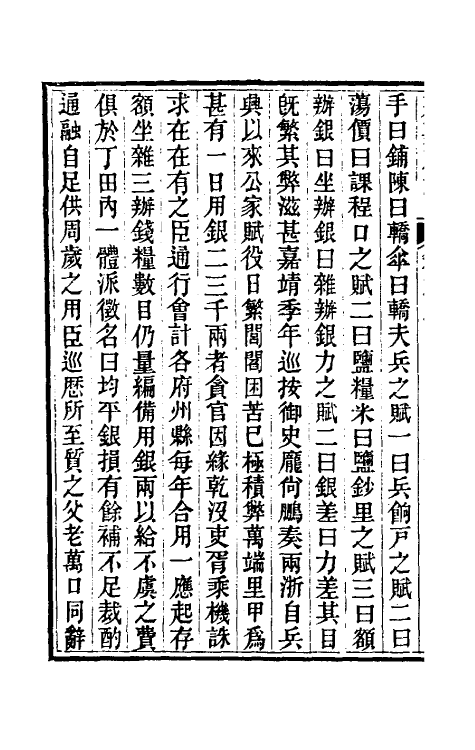 手曰鋪陳曰轎傘曰轎夫兵之賦一曰兵餉戸之賦二曰
蕩價曰課程口之賦二曰鹽糧米曰鹽鈔里之賦三曰額
辦銀曰坐辦銀曰雜辦銀力之賦二曰銀差曰力差其目
旣繁其弊滋甚嘉靖季年巡按御史龐尚鵬奏兩浙自兵
興以來公家賦役日繁閭閻困苦已極積弊萬端里甲爲
甚有一日用銀二三千兩者貪官因緣乾沒吏胥乘機誅
求在在有之臣通行會計各府州縣每年合用一應起存
額坐雜三辦錢糧數目仍量編備用銀兩以給不虞之費
俱於丁田內一體派徵名曰均平銀損有餘補不足裁酌
通融自足供周歲之用臣巡歷所至質之父老萬口同辭